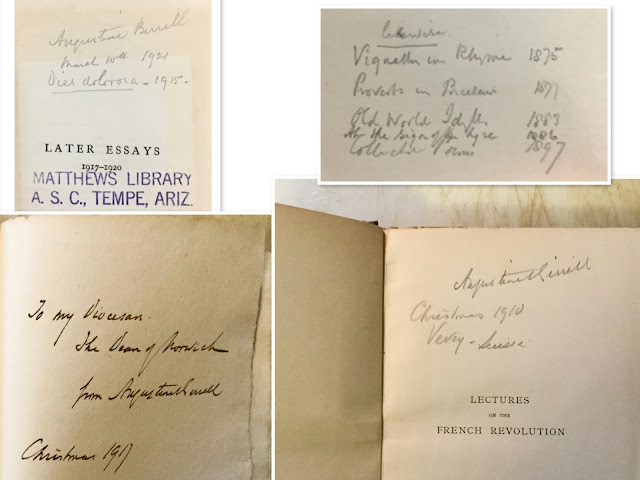 Augustine Birrell
March 10th 1921
Dies dolorosa - 1915 -
LATER ESSAYS
1917-1920
MATTHEWS LIBRARY
A. S. C., TEMPE, ARIZ.
likewise
Vignettes in Rhyme 1875
Proverbs in Porcelain 1877
Old World Idylls 1883
At the Sign of the Lyre 1886
Collected Poems 1897
To my Diocesan.
The Dean of Norwich
from Augustine Birrell
Christmas 1917
Augustine Birrell
Christmas 1910
Vevey - Suisse
LECTURES
ON THE
FRENCH REVOLUTION